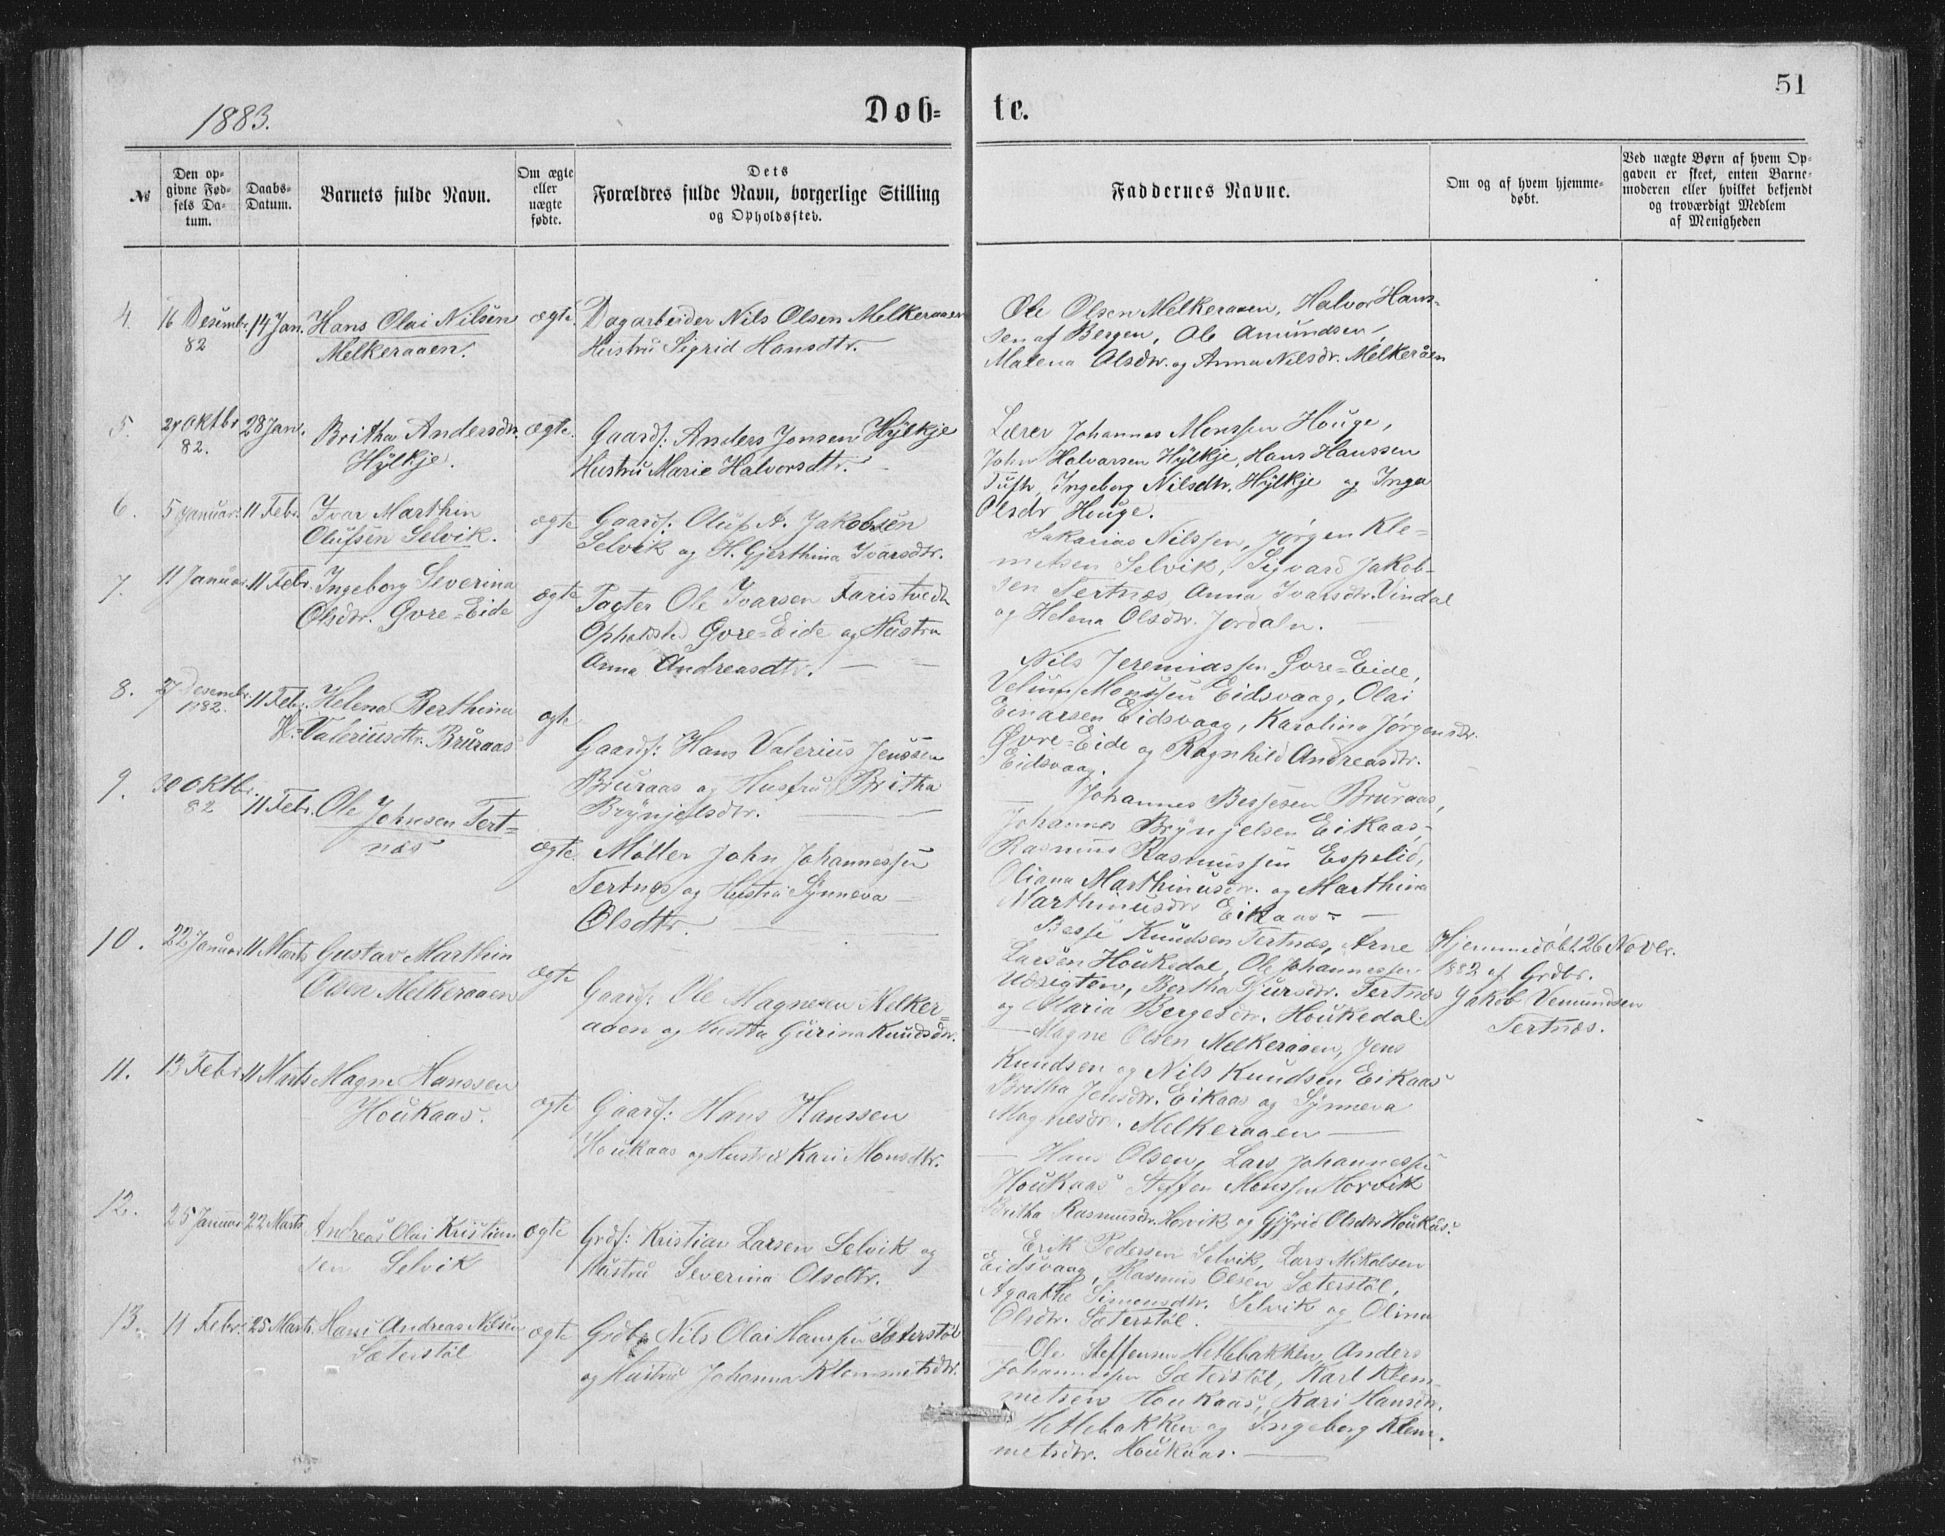 51
1883.
Døb-
te.
№
Den op-
givne Fød-
sels Da-
tum.
Daabs-
Datum.
Barnets fulde Navn.
Om ægte
eller
uægte
fødte.
Dets
Forældres fulde Navn, borgerlige Stilling
og Opholdssted.
Faddernes Navne.
Om og af hvem hjemme-
døbt.
Ved uægte Børn af hvem Op-
gaven er skeet, enten Barne-
moderen eller hvilket bekjendt
og troværdigt Medlem
af Menigheden
4.
16 Desembr
82
14 Jan.
Hans Olai Nilsen
Melkeraaen.
ægte
Dagarbeider Nils Olsen Melkeraaen
Hustru Sigrid Hansdtr.
Ole Olsen Melkeraaen, Halvor Hans-
sen af Bergen, Ole Amundsen,
Malena Olsdtr. og Anna Nilsdr. Melkeråen
5.
27 Oktbr
82.
28 Jan.
Britha Andersdtr.
Hylkje.
ægte.
Gaardf: Anders Jonsen Hylkje
Hustru Marie Halvorsdtr.
Lærer Johannes Monssen Houge,
John Halvarsen Hylkje, Hans Hanssen
Tuft, Ingeborg Nilsdtr. Hylkje og Inga
Olsdr Houge.
6.
5 Januar
11 Febr.
Ivar Marthin
Olufsen Selvik.
ægte
Gaardf: Oluf A. Jakobsen
Selvik og H. Gjerthina Ivarsdtr.
Sakarias Nilssen, Jørgen Kle-
metsen Selvik, Sigvard Jakob-
sen Tertnæs, Anna Ivarsdtr. Vindal
og Helena Olsdtr. Jordaln.
7.
11 Januar
11 Febr.
Ingeborg Severina
Olsdtr. Øvre-Eide
ægte
Pagter Ole Ivarsen Faristvedt
Opholdsted Øvre-Eide og Hustru
Anna Andreasdtr.
Nils Jeremiassen Øvre-Eide,
Monssen Eidsvaag, Olai
Einarsen Eidsvaag, Karolina Jørgensdr.
Øvre-Eide og Ragnhild Andreasdtr.
Eidsvaag.
8.
27 Desembr.
1882.
11 Febr.
Helena Berthina
H. Valeriusdtr. Bruraas
ægte
Gaardf: Hans Valerius Jenssen
Bruraas og Hustru Britha
Brynjelsdtr.
Johannes Bessesen Bruraas,
Johannes Brynjelsen Eikaas
Rasmus Rasmussen Espelid,
Oliana Marthinusdr. og Marthina
Marthinusdr Eikaas
9.
30 Oktbr.
82
11 Febr.
Ole Johnsen Tert-
næs
ægte
Møller John Johannessen
Tertnæs og Hustru Synneva
Olsdtr.
Besse Knudsen Tertnæs, Arne
Larsen Houkedal, Ole Johannessen
Udsigten, Bertha Sjursdr. Tertnæs
og Maria Bergesdr. Houkedal
Hjemmedøbt 26 Novbr.
1882 af Grdbr.
Jakob Vemundsen
Tertnæs.
10.
22 Januar
11 Marts
Gustav Marthin
Olsen Melkeraaen
ægte
Gaardf: Ole Magnesen Melker-
aaen og Hustru Gurina Knudsdr.
Magne Olsen Melkeraaen, Jens
Knudsen og Nils Knudsen Eikaas
Britha Jensdr. Eikaas og Synneva
Magnesdr. Melkeraaen
11.
13 Febr.
11 Marts
Magne Hanssen
Houkaas.
ægte
Gaardf: Hans Hanssen
Houkaas og Hustru Kari Monsdtr.
Hans Olsen, Lars Johannessen
Houkaas Steffen Monssen Horvik
Britha Rasmusdtr. Horvik og Gjyrid Olsdtr Houkås.
12.
25 Januar
22 Marts
Andreas Olai Kristian-
sen Selvik
ægte
Grdf: Kristian Larsen Selvik og
Hustru Severina Olsdtr.
Erik Pedersen Selvik, Lars Mikalsen
Eidsvaag, Rasmus Olsen Sæterstøl,
Agathe Simonsdtr. Selvik og Olina
Olsdtr. Sæterstøl.
13.
11 Febr.
25 Marts
Hans Andreas Nilsen
Sæterstøl
ægte
Grdbr Nils Olai Hanssen Sæterstøl
og Hustru Johanna Klemmetsdtr.
Ole Steffensen Hetlebakken, Anders
Johannessen Sæterstøl, Karl Klem-
metsen Houkaas, Kari Hansdr.
Hetlebakken og Ingeborg Klem-
metsdr. Houkaas.